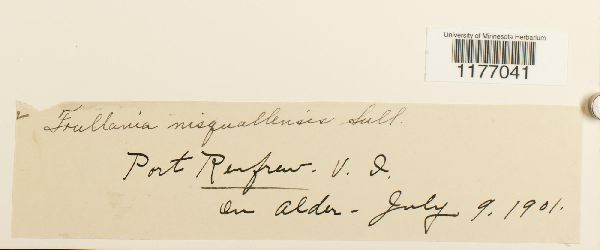 University of Minnesota Herbarium
1177041
Frullania nisquallensis Sull.
Port Renfrew. V. I.
On alder - July 9, 1901.